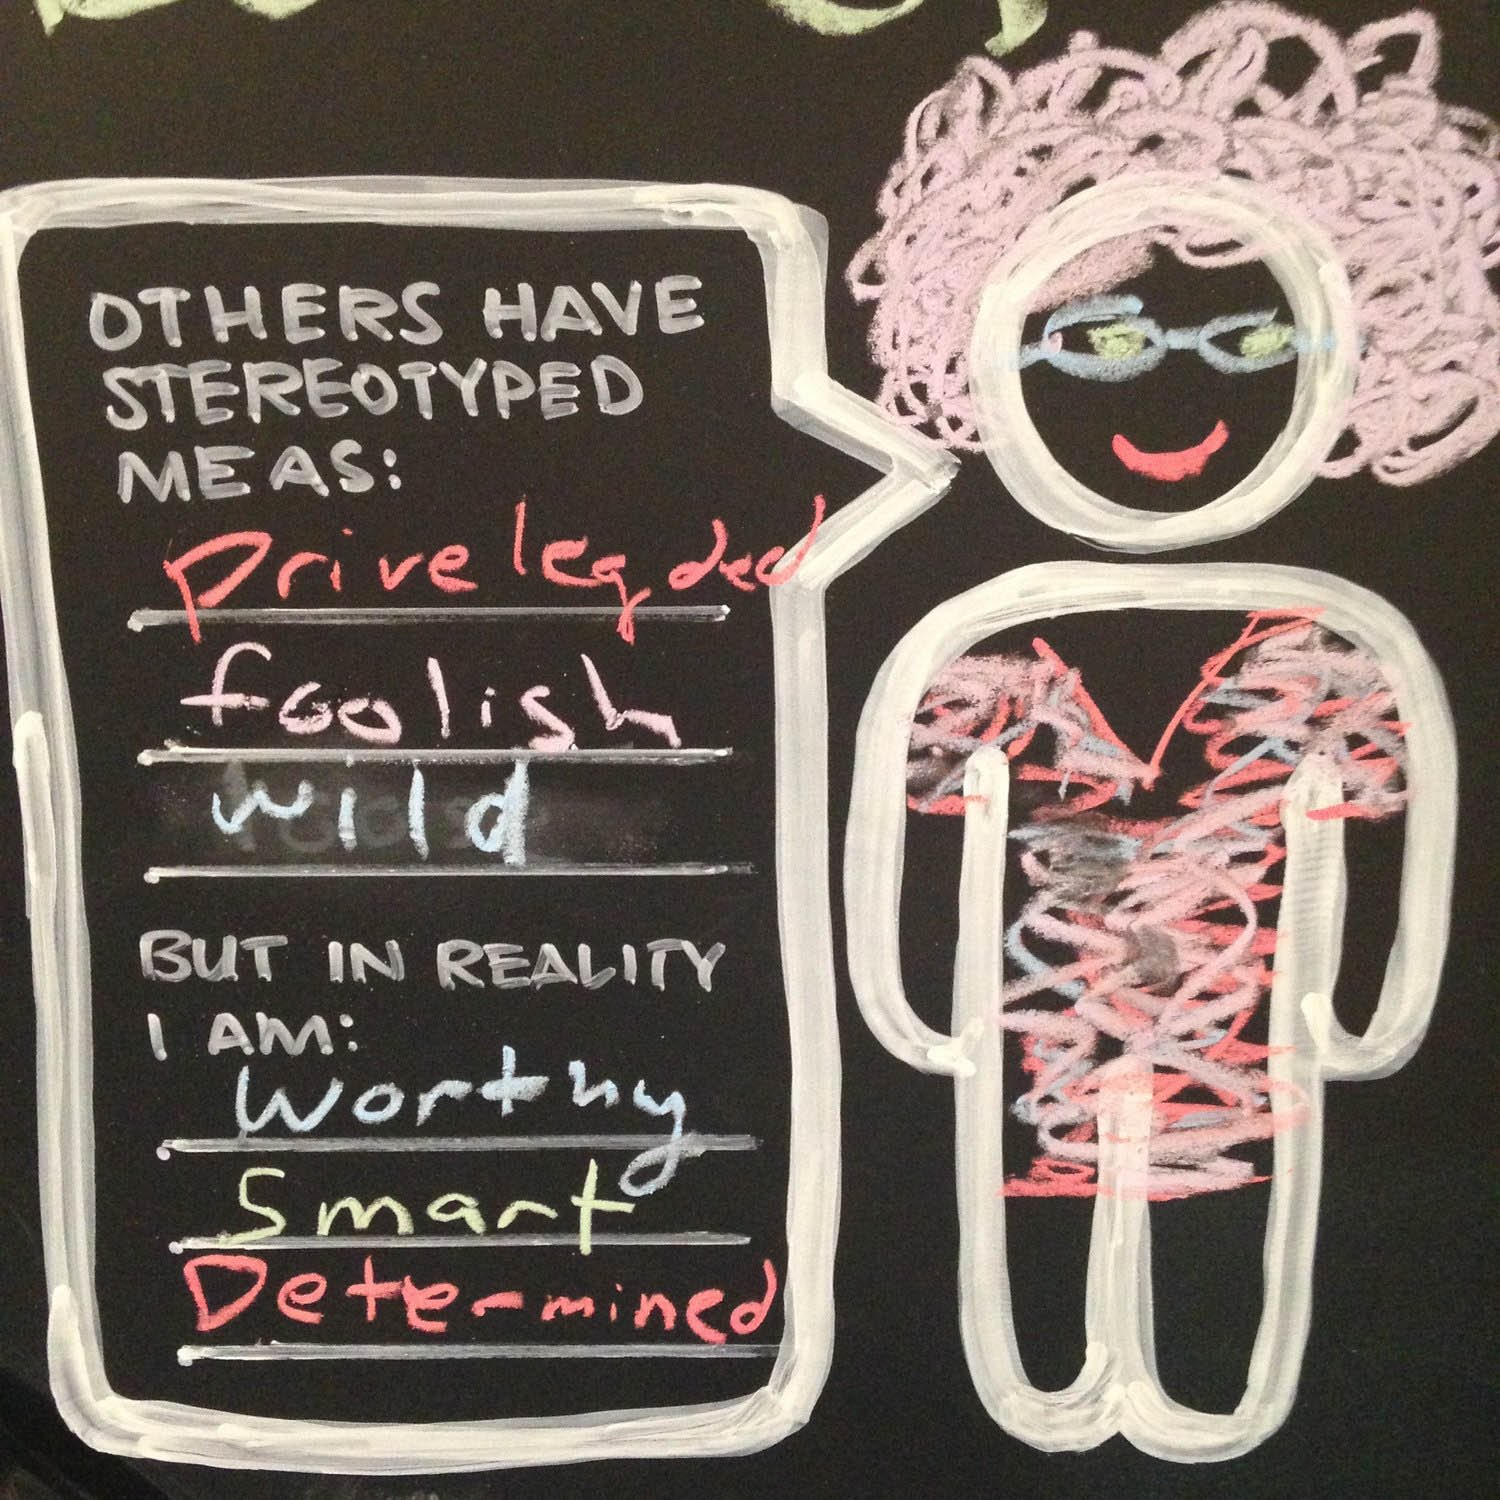 OTHERS HAVE
STEREOTYPED
ME AS:
Privelegded
foolish
wild
BUT IN REALITY
I AM:
Worthy
Smart
Determined